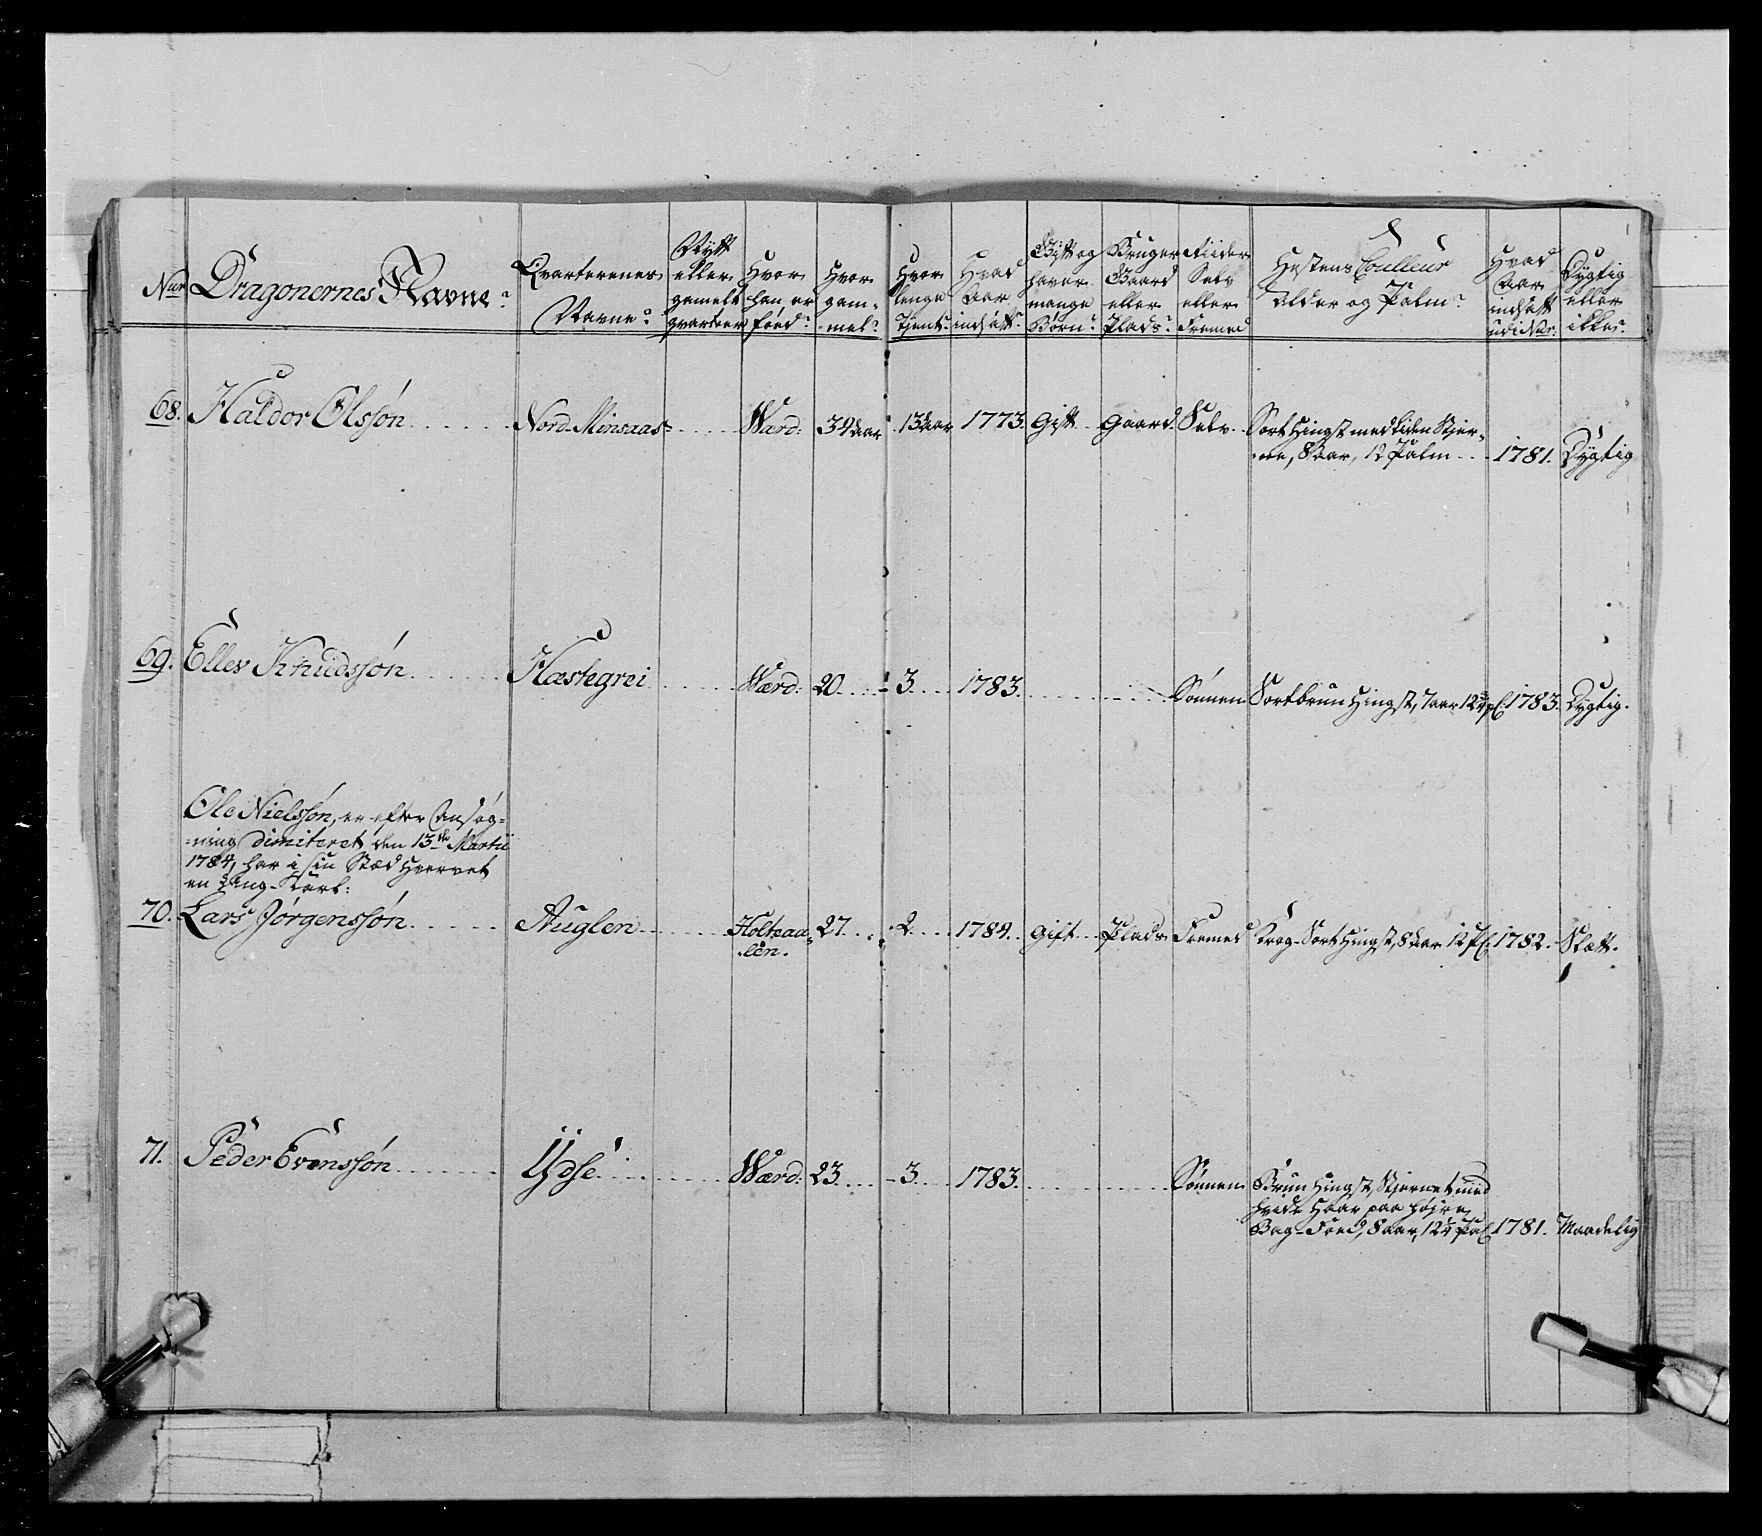 Nur Dragonernes Navne
Qvarterenes Navne
Nytt eller gemelt qvarteer
Hvor han er föed
Hvor gammel
Hvor lenge tjent
Hvad Aar indsatt
Gift og haver mange Börn
Bruger Gaard eller Plads
Riider Selv eller Fremed
Hestens Coulleur Alder og Palm
Hvad Aar indsatt udi Nur:
Dygtig eller ikke
68. Haldor Olssøn Nord-Minsaas Ward: 39 Aar 13 Aar 1773. Gift Gaard Selv Sort Hingst med liden Stjer-
ne, 8 Aar, 12 Palm 1781. Dygtig
69. Ellev Knudssøn Hæstegrei Wærd: 20 3 1783. Sönnen Sortbrun Hingst, 7 aar 12¾ pl: 1783. Dygtig.
Ole Nielssøn, er efter Ansög-
ning dimiteret den 13de Martii
1784, har i sin Stæd Hvervet
en Karl:
70. Lars Jørgenssøn Auglen Holtaa-
len. 27 2 1784. Gift Plads Fremed Sort Hingst, 8 Aar 12 pl: 1782. Slætt.
71. Peder Evenssøn Ÿdse Wærd: 23 3 1783. Sönnen Brun Hingst, Stjernet med
hvide Haar paa højre
Bag-Foed, 8 aar, 12¼ Pal: 1781. Maadelig